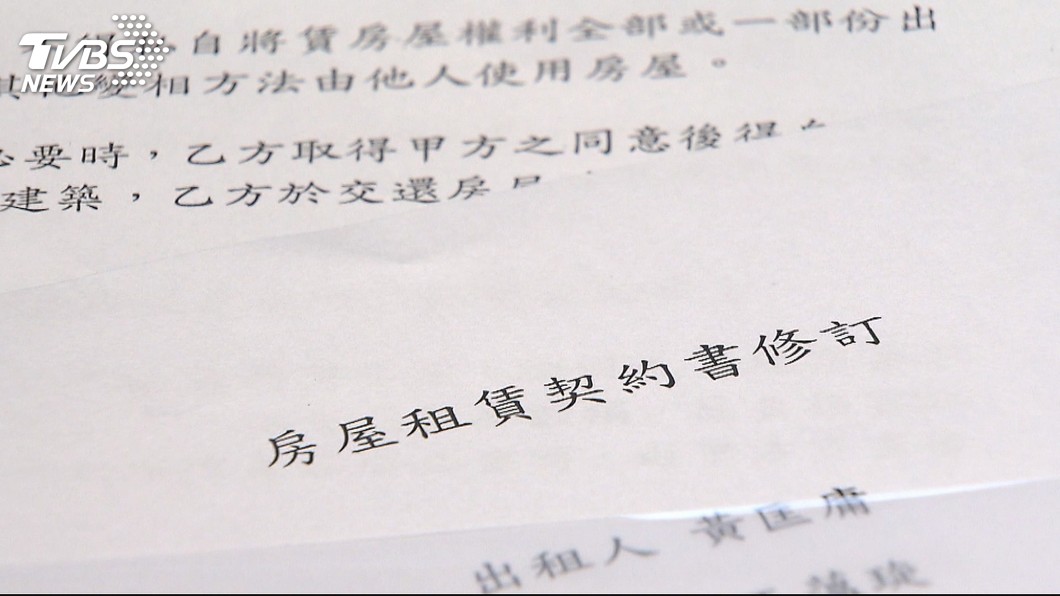 TVBS
NEWS
自將賃房屋權利全部或一部份出
其他變相方法由他人使用房屋。
必要時，乙方取得甲方之同意後得
建築，乙方於交還房
房屋租賃契約書修訂
出租人 黃匡庸